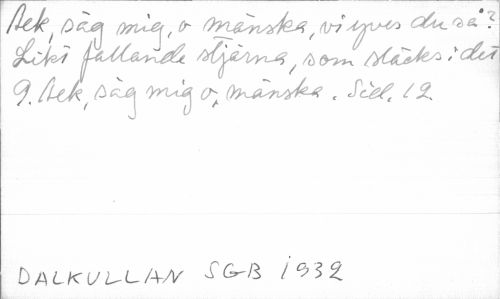 Aek, säg mig, o mänska, vi yves du så?
Likt fallande stjärna, som släcks i det
9. Aek, säg mig o, mänska. Sid. 12.
DALKULLAN SGB 1932